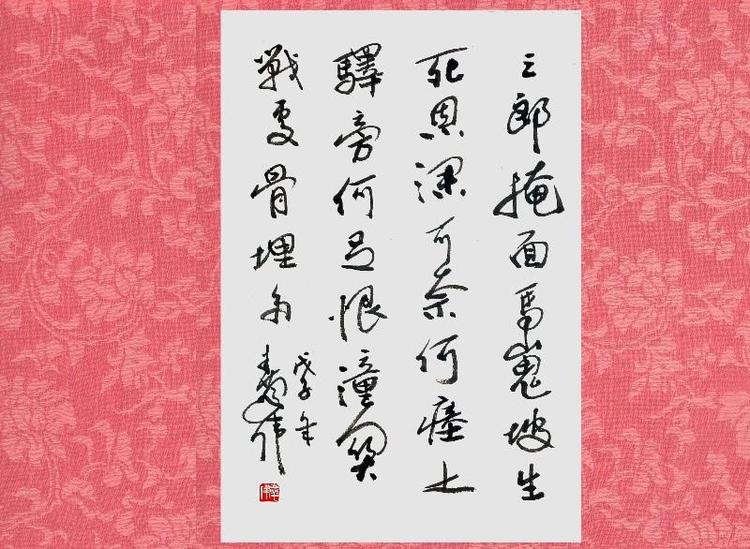 三郎掩面馬嵬坡生
死恩深可奈何瘞土
驛旁何足恨潼關
戰處骨埋多
戊子年